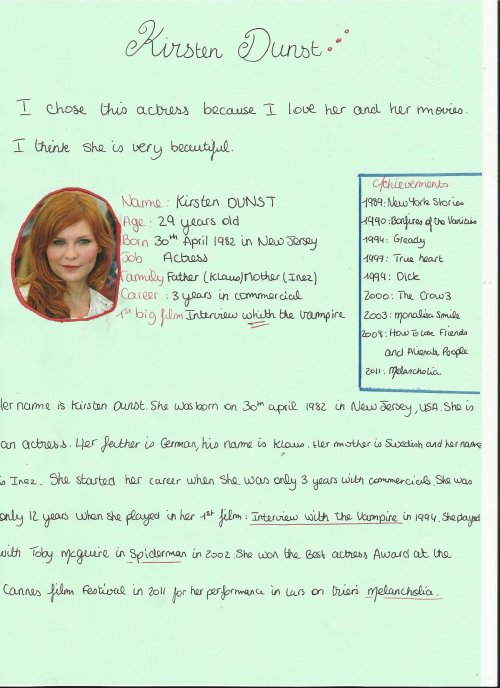 Kirsten Dunst
I chose this actress because I love her and her movies.
I think she is very beautiful.
Name: Kirsten DUNST
Age: 29 years old
Born 30th April 1982 in New Jersey
Job Actress
Family Father (Klaus) Mother (Inez)
Career: 3 years in commercial
1st big film Interview whith the vampire
Achievements
1989: New York Stories
1990: Bonfires of the Vanities
1994: Greedy
1997: True heart
1999: Dick
2000: The Crow3
2003: monalisa Smile
2008: How To Lose Friends
and Alienate People
2011: Melancholia
Her name is Kirsten Dunst. She was born on 30th april 1982 in New Jersey, USA. She is
an actress. Her father is German, his name is Klaus. Her mother is Swedish and her name
is Inez. She started her career when she was only 3 years with commercials. She was
only 12 years when she played in her 1st film: Interview with the Vampire in 1994. She played
with Toby McGuire in Spiderman in 2002. She won the Best actress Award at the
Cannes film Festival in 2011 for her performance in Lars on trier's Melancholia.